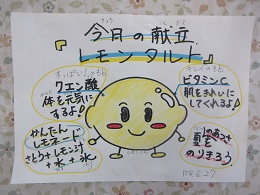 今日の献立
レモンタルト
すっぱいもと
クエン酸
体を元気に
するよ！
ビタミンC
肌をきれいに
してくれるよ♪
かんたん
レモネード
さとう+レモン汁
+水+氷
夏を
のりきろう
R4.6.27